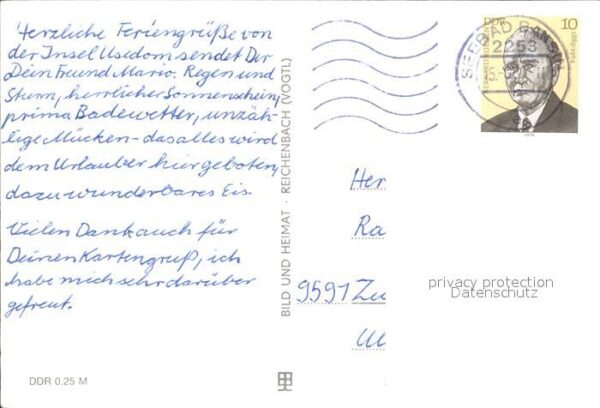 Herzliche Feriengrüße von
der Insel Usedom sendet Dir
Dein Freund Mario. Regen und
Sturm, herrlicher Sonnenschein,
prima Badewetter, unzäh-
lige Mücken - das alles wird
dem Urlauber hier geboten,
dazu wunderbares Eis.
Vielen Dank auch für
Deinen Kartengruß, ich
habe mich sehr darüber
gefreut.
DDR 0,25 M
BILD UND HEIMAT · REICHENBACH (VOGTL)
SEEBAD BANSIN
2253
DDR
10
Her
Ra
9591 Zw
privacy protection
Datenschutz